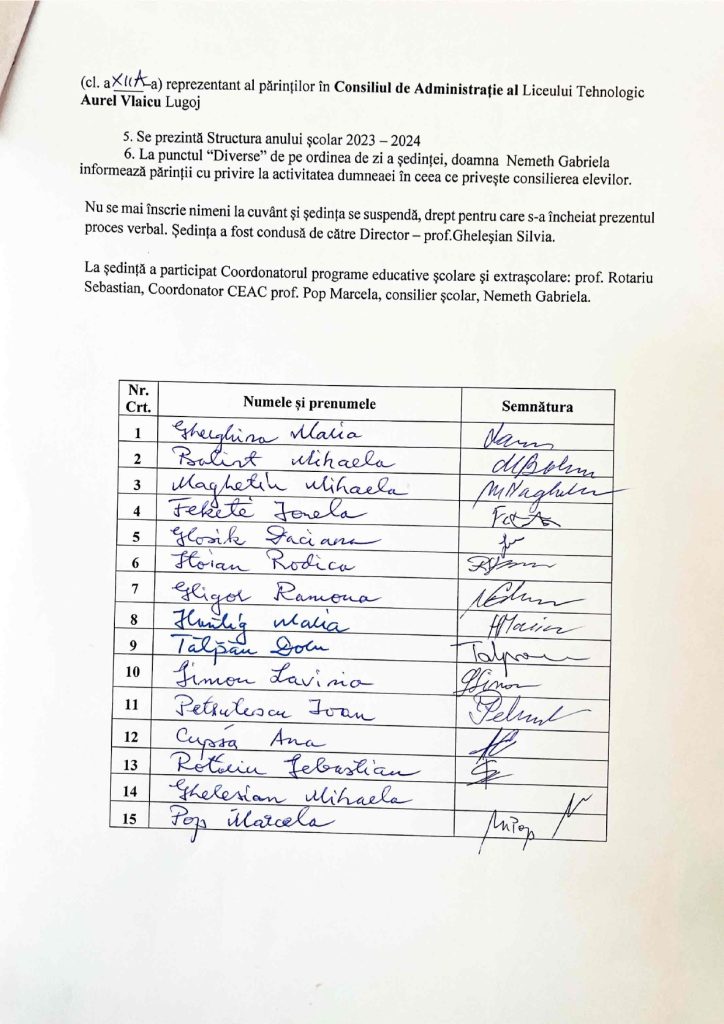 (cl. a XIIA-a) reprezentant al părinților în Consiliul de Administrație al Liceului Tehnologic
Aurel Vlaicu Lugoj
5. Se prezintă Structura anului școlar 2023 – 2024
6. La punctul “Diverse” de pe ordinea de zi a ședinței, doamna Nemeth Gabriela
informează părinții cu privire la activitatea dumneaei în ceea ce privește consilierea elevilor.
Nu se mai înscrie nimeni la cuvânt și ședința se suspendă, drept pentru care s-a încheiat prezentul
proces verbal. Ședința a fost condusă de către Director – prof.Gheleșian Silvia.
La ședință a participat Coordonatorul programe educative școlare și extrașcolare: prof. Rotariu
Sebastian, Coordonator CEAC prof. Pop Marcela, consilier școlar, Nemeth Gabriela.
Nr. Crt. Numele și prenumele Semnătura
1 Gherghina Maria
2 Balint Mihaela
3 Maghetiu Mihaela
4 Fekete Ionela
5 Glosik Daciana
6 Stoian Rodica
7 Gligor Ramona
8 Maria
9 Tălpău
10 Simon Lavinia
11 Petrulescu Ioan
12 Cupșa Ana
13 Rotariu Sebastian
14 Ghelesian Mihaela
15 Pop Marcela MPop